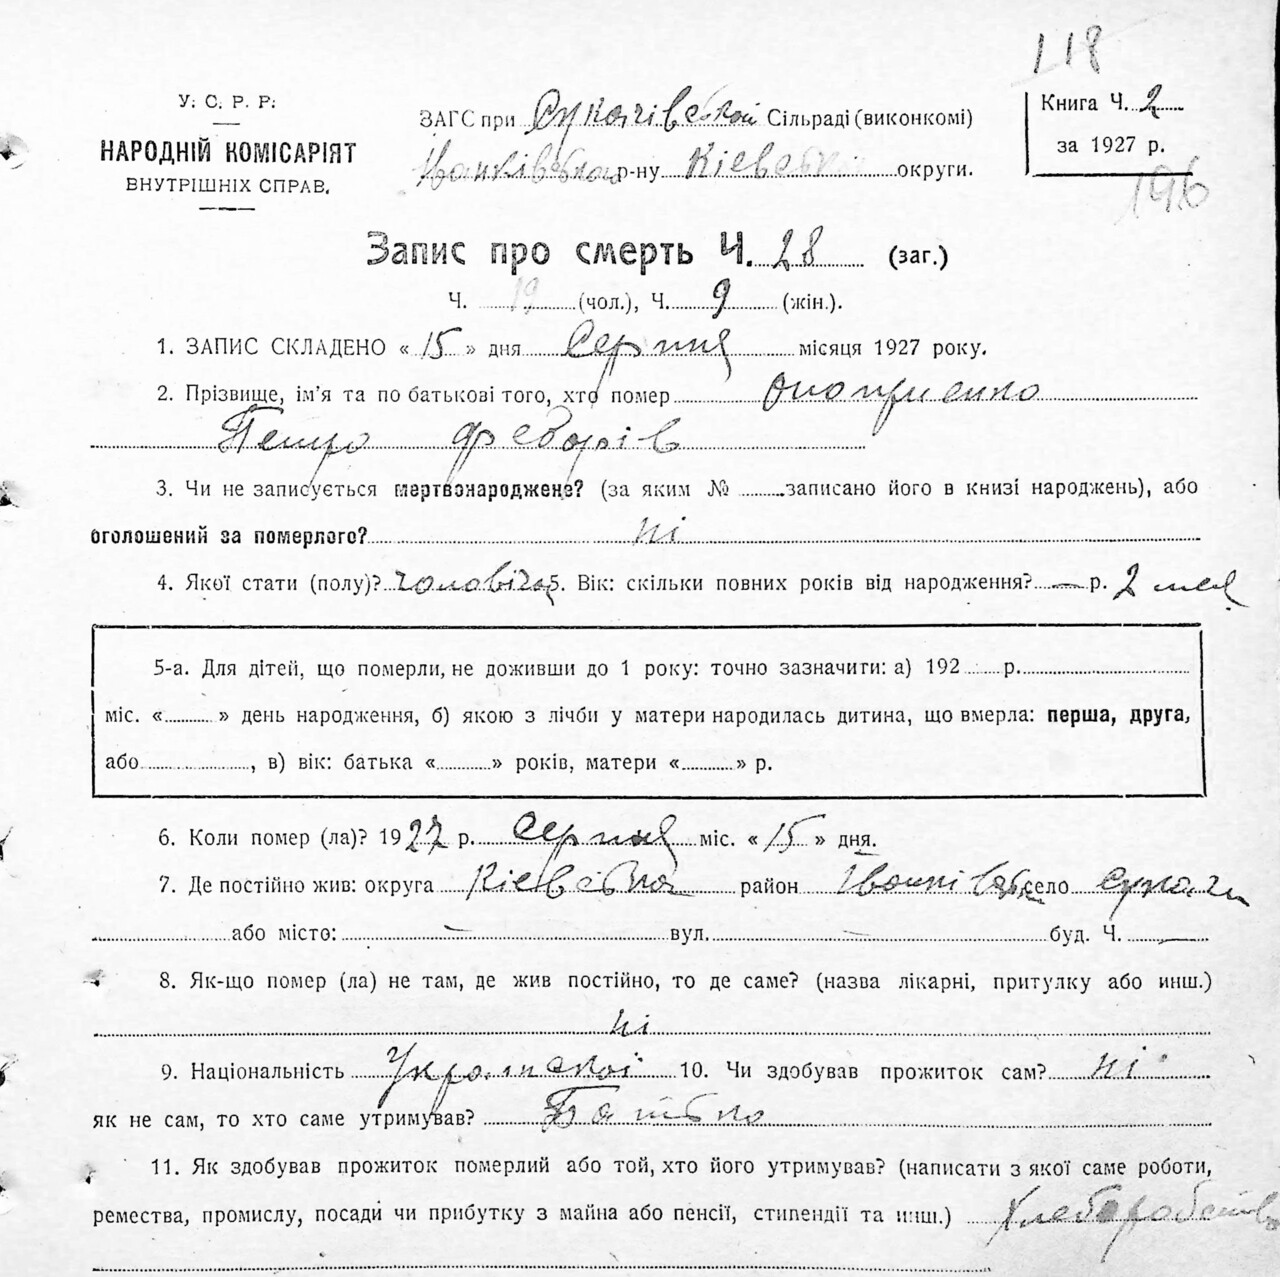 118
У. С. Р. Р.
НАРОДНІЙ КОМІСАРІЯТ
ВНУТРІШНІХ СПРАВ.
ЗАГС при Сукачівской Сільраді (виконкомі)
Іванківської р-ну Кієвської округи.
Книга Ч. 2
за 1927 р.
196
Запис про смерть Ч. 28 (заг.)
Ч. 19 (чол.), Ч. 9 (жін.).
1. ЗАПИС СКЛАДЕНО « 15 » дня Серпня місяця 1927 року.
2. Прізвище, ім'я та по батькові того, хто помер Оноприенко
Петро Федорів
3. Чи не записується мертвонароджене? (за яким № записано його в книзі народжень), або
оголошений за померлого? ні
4. Якої стати (полу)? чоловіча 5. Вік: скільки повних років від народження? — р. 2 мес
5-а. Для дітей, що померли, не доживши до 1 року: точно зазначити: а) 192 р.
міс. « » день народження, б) якою з лічби у матери народилась дитина, що вмерла: перша, друга,
або , в) вік: батька « » років, матери « » р.
6. Коли помер (ла)? 1927 р. Серпня міс. « 15 » дня.
7. Де постійно жив: округа Кієвська район Іванківськ село Сукачи
або місто: — вул. — буд. Ч. —
8. Як-що помер (ла) не там, де жив постійно, то де саме? (назва лікарні, притулку або инш.)
ні
9. Національність Украінскоі 10. Чи здобував прожиток сам? ні
як не сам, то хто саме утримував? Батько
11. Як здобував прожиток померлий або той, хто його утримував? (написати з якої саме роботи,
ремества, промислу, посади чи прибутку з майна або пенсії, стипендії та инш.) Хлеборобство